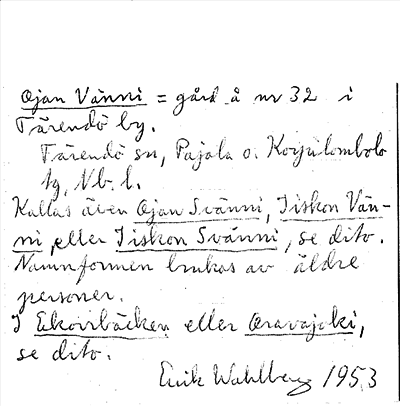 Ojan Vänni = gård å nr 32 i
Tärendö by.
Tärendö sn, Pajala o. Korpilombolo
tg, Nb. l.
Kallas även Ojan Svänni, Tiskon Vän-
ni, eller Tiskon Svänni, se dito.
Namnformen brukas av äldre
personer.
I Ekorrbäcken eller Oravajoki,
se dito.
Erik Wahlberg 1953